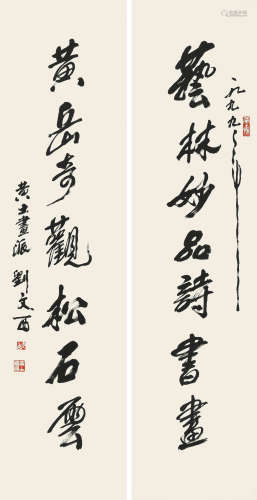 一九九九年
藝林妙品詩書畫
黃岳奇觀松石雲
黃土畫派劉文西